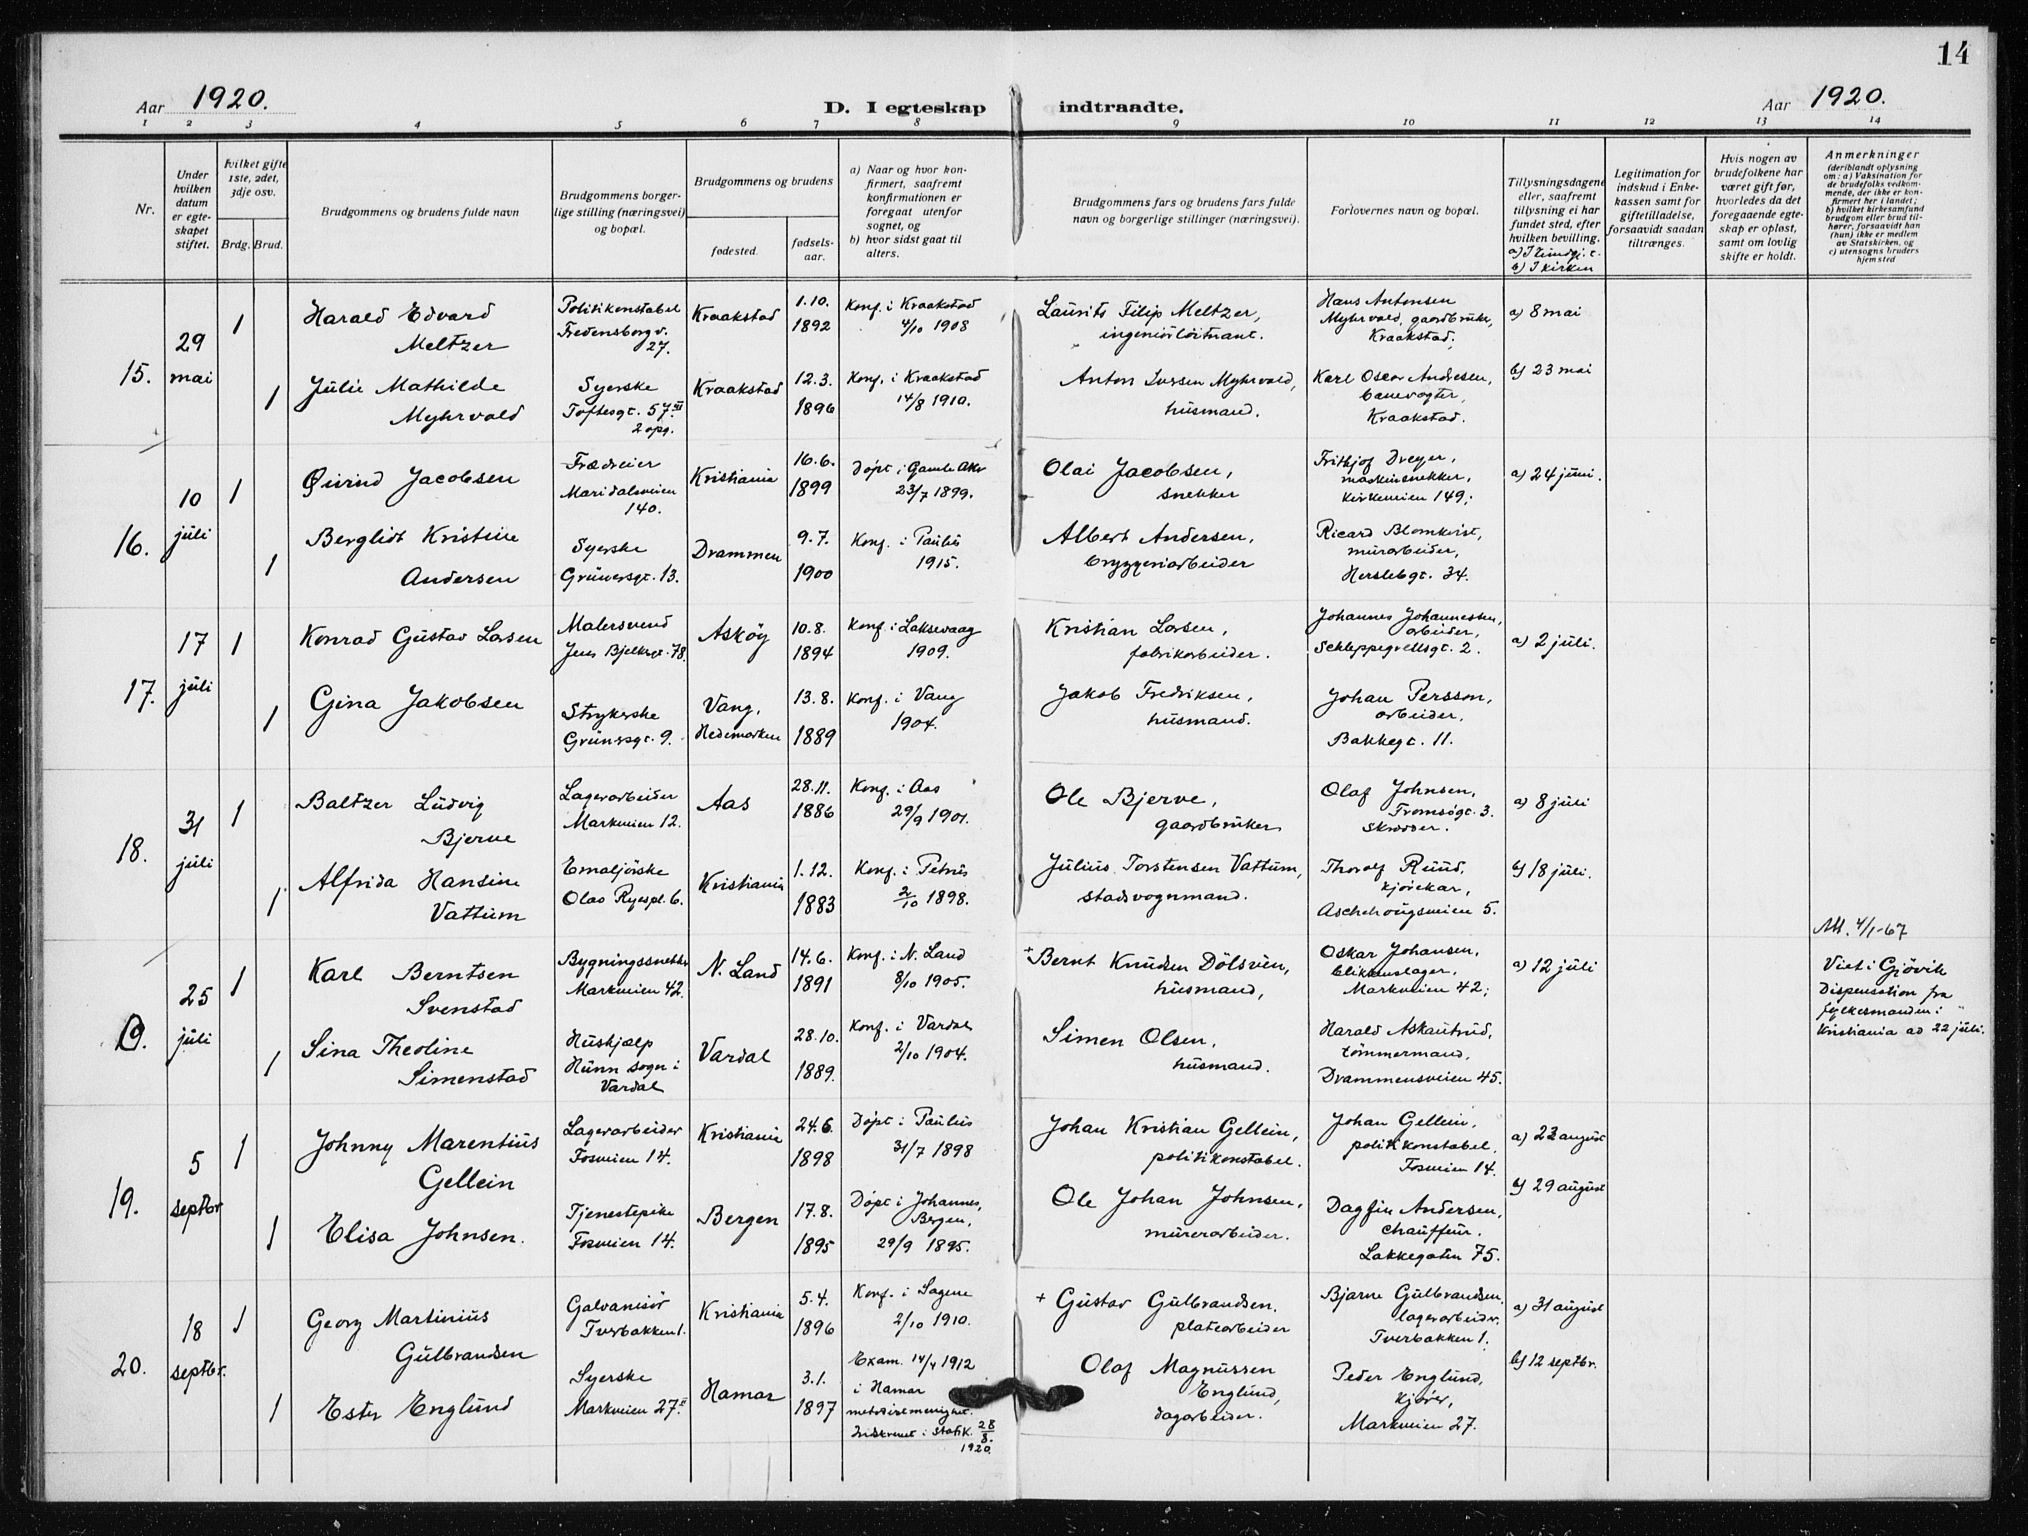 14
Aar 1920.
D. I egteskap indtraadte.
Aar 1920.
1 2 3 4 5 6 7 8 9 10 11 12 13 14
Nr.
Under
hvilken
datum
er egte-
skapet
stiftet.
Hvilket gifte
1ste, 2det,
3dje osv.
Brdg. Brud.
Brudgommens og brudens fulde navn
Brudgommens borger-
lige stilling (næringsvei)
og bopæl.
Brudgommens og brudens
fødested.
fødsels-
aar.
a) Naar og hvor kon-
firmert, saafremt
konfirmationen er
foregaat utenfor
sognet, og
b) hvor sidst gaat til
alters.
Brudgommens fars og brudens fars fulde
navn og borgerlige stillinger (næringsvei).
Forlovernes navn og bopæl.
Tillysningsdagene
eller, saafremt
tillysning ei har
fundet sted, efter
hvilken bevilling.
b) I kirken
Legitimation for
indskud i Enke-
kassen samt for
giftetilladelse,
forsaavidt saadan
tiltrænges.
Hvis nogen av
brudefolkene har
været gift før,
hvorledes da det
foregaaende egte-
skap er opløst,
samt om lovlig
skifte er holdt.
Anmerkninger
(deriblandt oplysning
om: a) Vaksination for
de brudefolks vedkom-
mende, der ikke er kon-
firmert her i landet;
b) hvilket kirkesamfund
brudgom eller brud til-
hører, forsaavidt han
(hun) ikke er medlem
av Statskirken, og
c) utensogns bruders
hjemsted
15.
29
mai
1
Harald Edvard
Meltzer
Politikonstabel
Fredensborgv.
27.
Kraakstad
1.10.
1892
Konf. i Kraakstad
4/10 1908
Laurits Filip Meltzer,
ingeniörlöitnant.
Hans Antonsen
Myhrvold, gaardbruker,
Kraakstad;
a) 8 mai
1
Julie Mathilde
Myhrvold
Syerske
Toftesgt. 57 III
2 opg.
Kraakstad
12.3.
1896
Konf. i Kraakstad
14/8 1910.
Anton Iversen Myhrvold,
husmand.
Karl Oscar Andresen,
banevogter,
Kraakstad.
b) 23 mai
16.
10
juli
1
Öivind Jacobsen
Maridalsveien
140.
Kristiania
16.6.
1899
Döpt i Gamle Aker
23/7 1899.
Olai Jacobsen,
snekker
Frithjof Dreyer,
maskinsnekker,
Kirkeveien 149;
a) 24 juni.
1
Bergliot Kristine
Andersen
Syerske
Grünersgt. 13.
Drammen
9.7.
1900
Konf. i Paulus
1915.
Albert Andersen,
bryggeriarbeider
Ricard Blomkvist,
murarbeider,
Herslebgt. 34.
17.
17
juli
1
Konrad Gustav Larsen
Malersvend
Jens Bjelkesgt. 78.
Asköy
10.8.
1894
Konf. i Laksevaag
1909.
Kristian Larsen,
fabrikarbeider.
Johannes Johannessen,
arbeider,
Schleppegrellsgt. 2.
a) 2 juli.
1
Gina Jakobsen
Strykerske
Grünersgt. 9.
Vang,
Hedemarken
13.8.
1889
Konf. i Vang
1904.
Jakob Fredriksen,
husmand.
Johan Persson,
arbeider.
Bakkegt. 11.
18.
31
juli
1
Baltzer Ludvig
Bjerve
Lagerarbeider
Markveien 12.
Aas
28.11.
1886
Konf. i Aas
29/9 1901.
Ole Bjerve,
gaardbruker
Olaf Johnsen,
Tromsögt. 3.
skrædder.
a) 8 juli
1
Alfrida Hansine
Vattum
Emaljörske
Olas Ryespl. 6.
Kristiania
1.12.
1883
Konf. i Petrus
2/10 1898.
Julius Torstensen Vattum,
stadsvognmand.
Thorolf Ruud,
kjörekar,
Aschehougsveien 5.
b) 18 juli.
19.
25
juli
1
Karl Berntsen
Svenstad
Bygningssnekker
Markveien 42.
N. Land
14.6.
1891
Konf. i N. Land
8/10 1905.
+ Bernt Knudsen Dölsvën,
husmand,
Oskar Johansen,
blikkenslager,
Markveien 42;
a) 12 juli
Att. 4/1-67
Viet i Gjövik
Dispensation fra
fylkesmanden i
Kristiania ad 22 juli.
1
Sina Theoline
Simenstad
Hushjælp
Hunn sogn i
Vardal
Vardal
28.10.
1889.
Konf. i Vardal
2/10 1904.
Simen Olsen,
husmand.
Harald Askautrud,
tömmermand,
Drammensveien 45.
19.
5
septbr
1
Johnny Marentius
Gellein
Lagerarbeider
Fosveien 14.
Kristiania
24.6.
1898
Döpt i Paulus
31/7 1898
Johan Kristian Gellein,
politikonstabel.
Johan Gellein,
politikonstabel,
Fosveien 14.
a) 22 august
1
Elisa Johnsen.
Tjenestepike
Fosveien 14.
Bergen
17.8.
1895
Döpt i Johannes,
Bergen,
29/9 1895.
Ole Johan Johnsen,
murerarbeider.
Dagfin Andersen,
chauffeur.
Lakkegaten 75.
b) 29 august
20.
18
septbr.
1
Georg Martinius
Gulbrandsen
Galvanisör
Tverbakken 1.
Kristiania
5.4.
1896
Konf. i Sagene
2/10 1910.
+ Gustav Gulbrandsen.
platearbeider
Bjarne Gulbrandsen,
lagerarbeider,
Tverbakken 1.
a) 31 august
1
Ester Englund
Syerske
Markveien 27 II
Hamar
3.1.
1897
Exam. 14/4 1912
i Hamar
metodistmenighet.
Indskrevet i statsk. 28/8.
1920.
Olaf Magnussen
Englund,
dagarbeider.
Peder Englund,
kjörer,
Markveien 27.
b) 12 septbr.